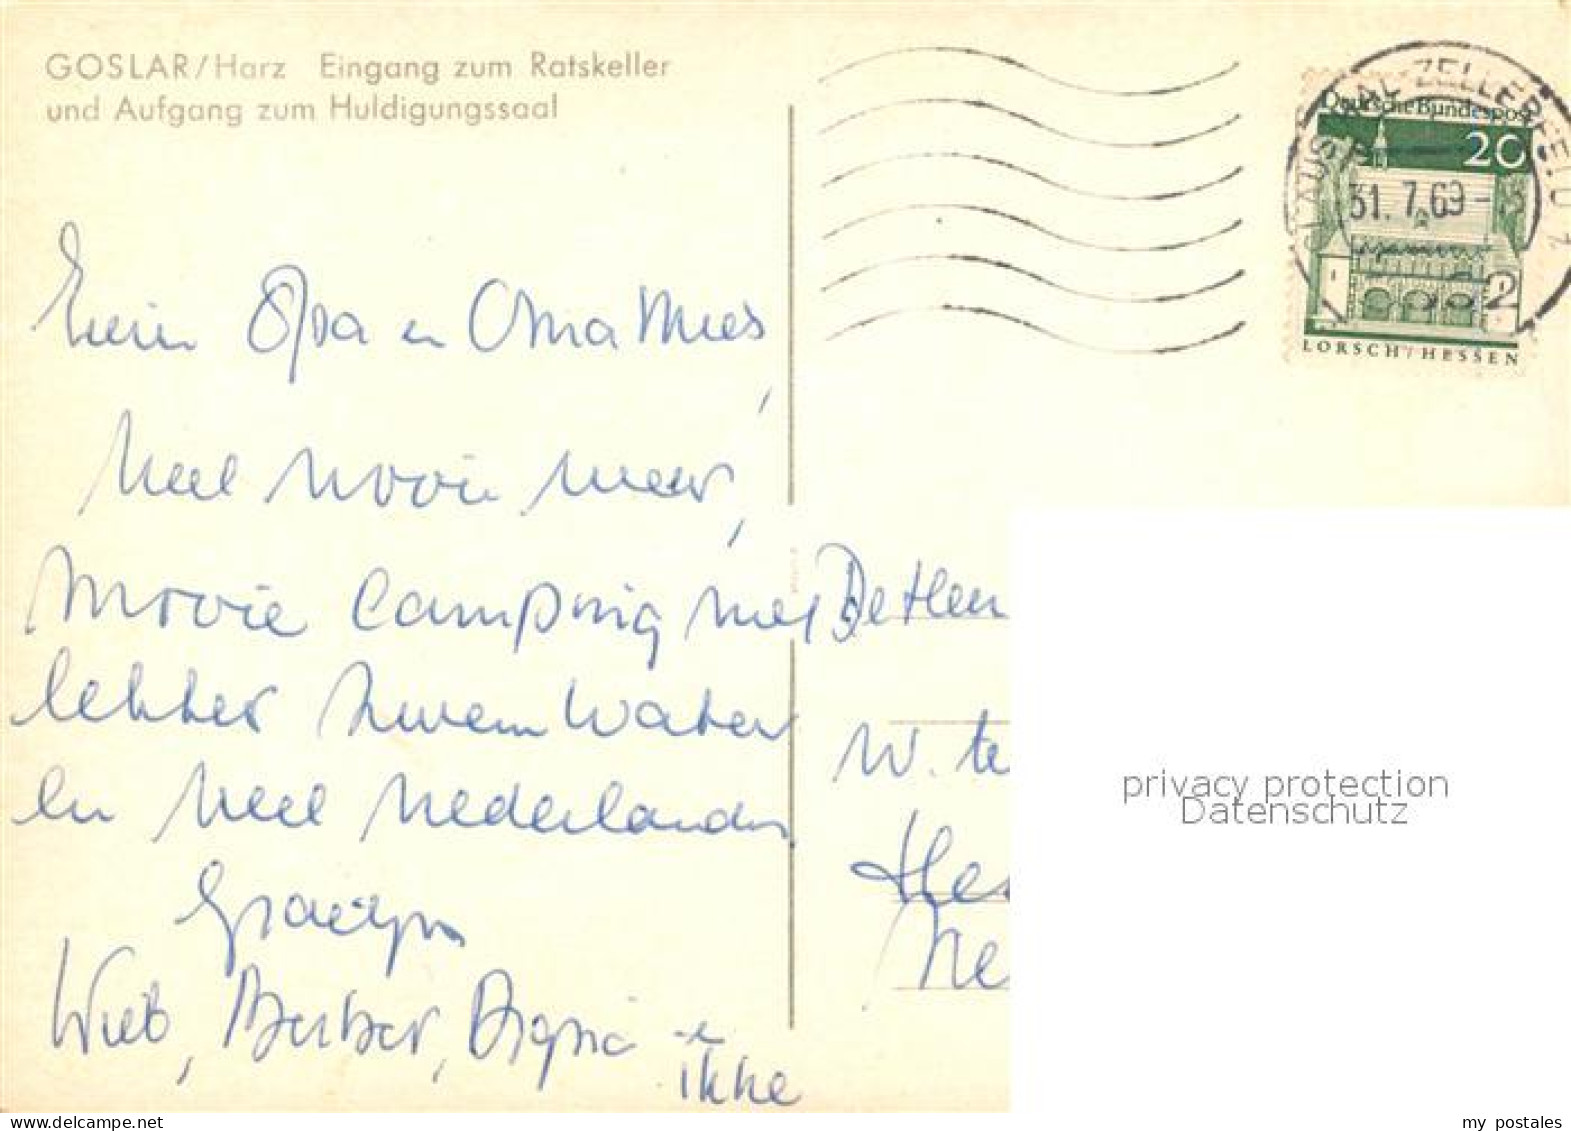 GOSLAR/Harz Eingang zum Ratskeller
und Aufgang zum Huldigungssaal
Deutsche Bundespost
20
CLAUSTHAL-ZELLERFELD 1
31.7.69-
LORSCH/HESSEN
Opa en Oma Mies,
heel mooi weer,
mooie Camping met
lekker zwemwater
en heel Nederlands
Wieb, Berber, Digna en
ikke
W. te
Ne
privacy protection
Datenschutz
delcampe.net
my_postales